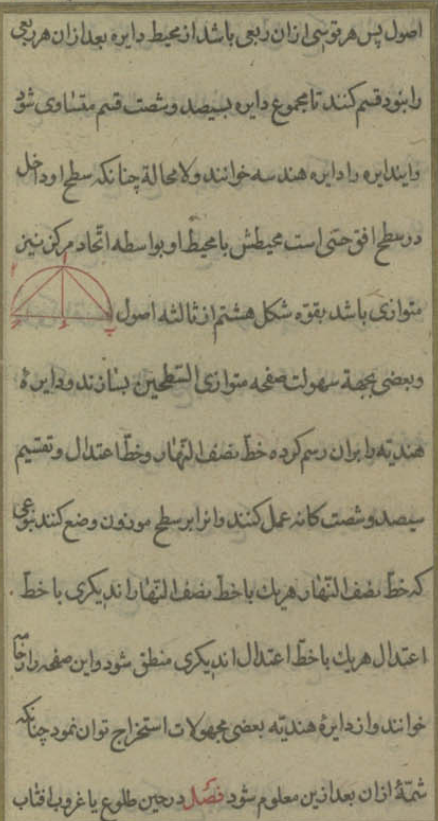 اصول پس هر قوسی ازان ربعی باشد از محیط دایره بعد ازان هر ربعی
را بنود قسم کنند تا مجموع دایره بسیصد و شصت قسم متساوی شود
و ایندایره را دایره هندسه خوانند ولا محالة چنانکه سطح او داخل
در سطح افق حتی است محیطش با محیط او بواسطه اتحاد مرکز نیز
متوازی باشد بقوه شکل هشتم از ثالثه اصول
و بعضی بجهة سهولت صفحه متوازی السطحین بسازند و دایرهٔ
هندیّه را بران رسم کرده خط نصف النهار و خط اعتدال و تقسیم
سیصد و شصت کانه عمل کنند و انرا بر سطح موزون وضع کنند بنوعی
که خط نصف النهار هریك با خط نصف النهار اندیکری با خط
اعتدال هریك با خط اعتدال اندیکری منطق شود و این صفحه را
خوانند و از دایرهٔ هندیّه بعضی مجهولات استخراج توان نمود چنانکه
شمّهٔ ازان بعد ازین معلوم شود فصل در حین طلوع یا غروب افتاب